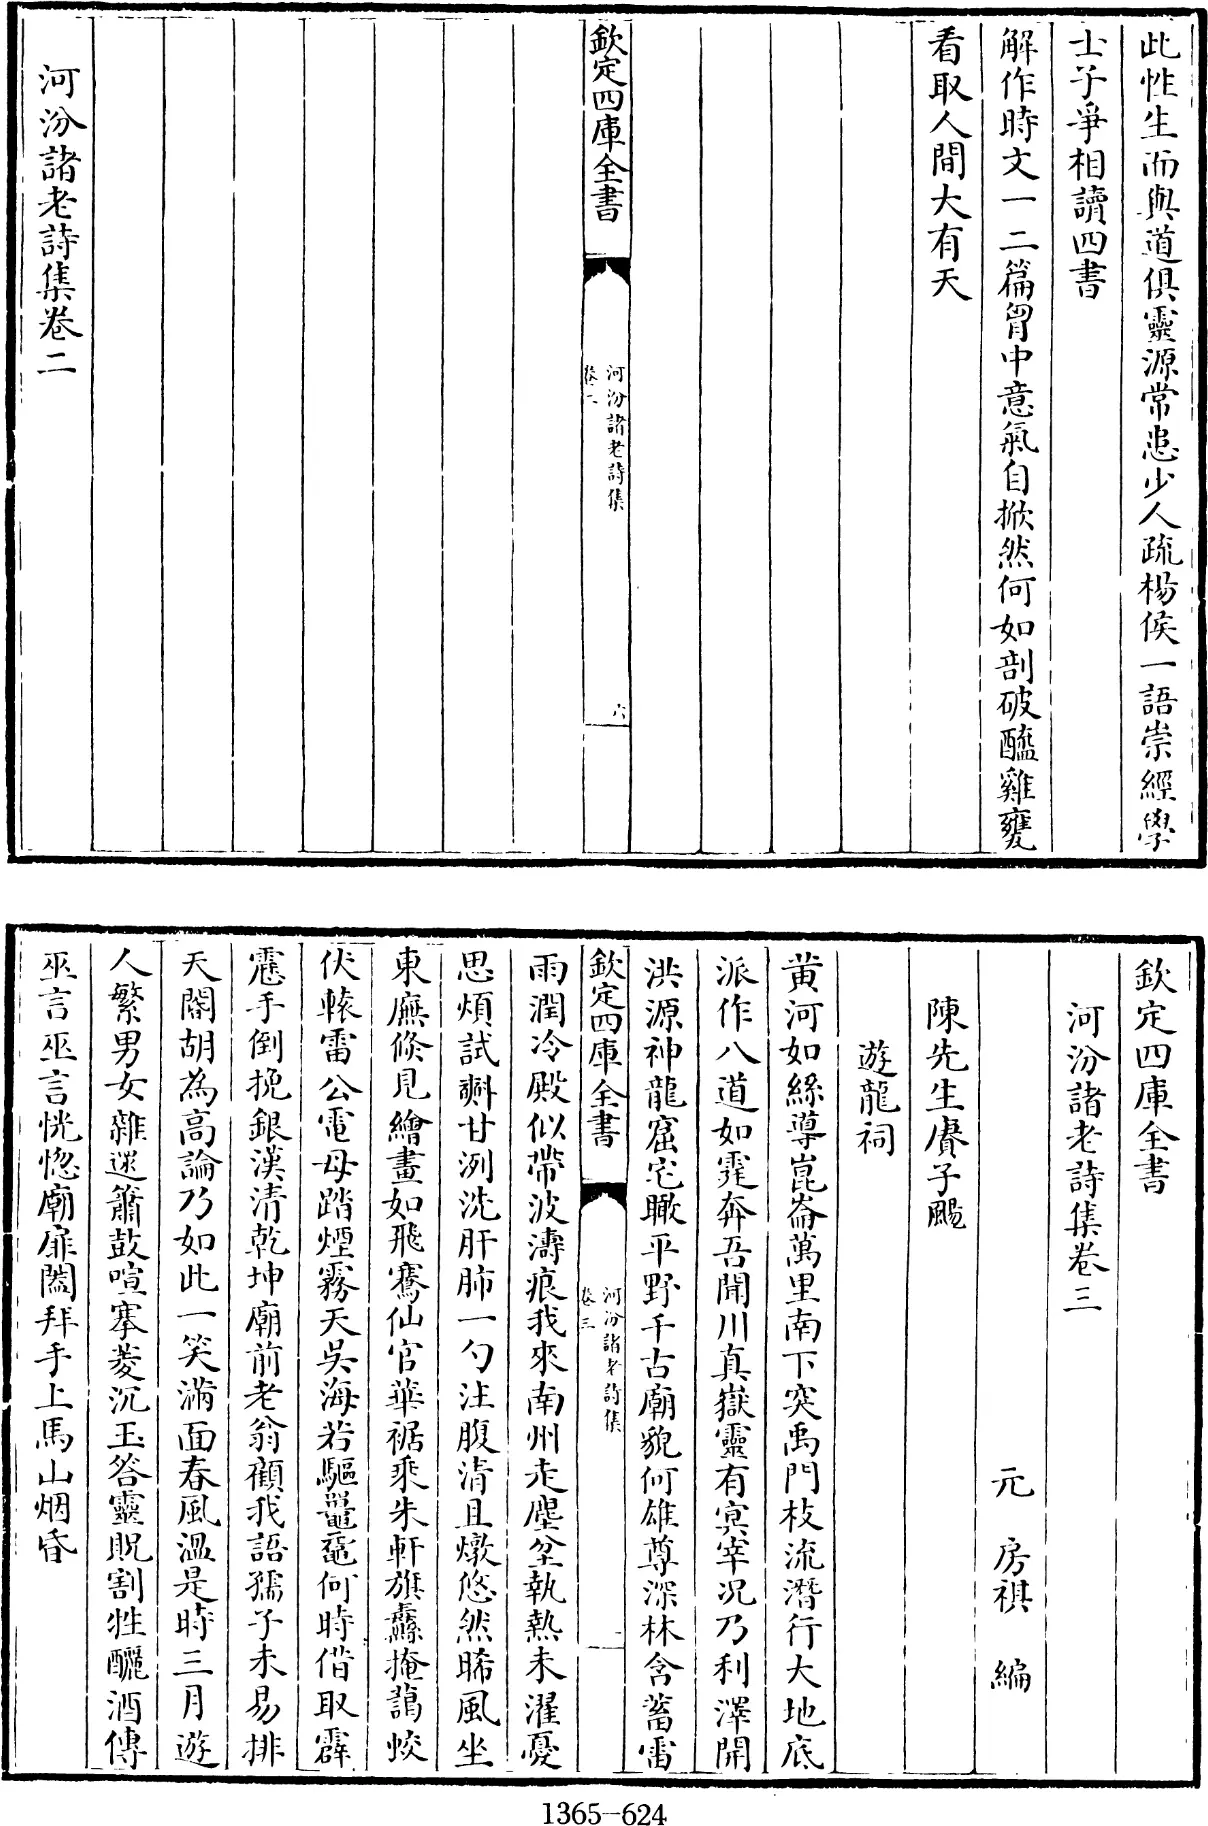 此性生而與道俱靈源常患少人疏楊侯一語崇經學
士子爭相讀四書
解作時文一二篇胷中意氣自掀然何如剖破醯雞甕
看取人間大有天
欽定四庫全書
河汾諸老詩集
卷二
六
河汾諸老詩集卷二
欽定四庫全書
河汾諸老詩集卷三
元 房祺 編
陳先生賡子颺
遊龍祠
黄河如絲導崑崙萬里南下突禹門枝流潛行大地底
派作八道如霆奔吾聞川真嶽靈有冥宰况乃利澤開
洪源神龍窟宅瞰平野千古廟貌何雄尊深林含蓄雷
欽定四庫全書
河汾諸老詩集
卷三
一
雨潤冷殿似帶波濤痕我來南州走塵坌執熱未濯憂
思煩試㪺甘洌洗肝肺一勺注腹清且燉悠然晞風坐
東廡倐見繪畫如飛騫仙官華裾乘朱軒旗纛掩藹蛟
伏轅雷公電母踏煙霧天吳海若驅鼉黿何時借取霹
靂手倒挽銀漢清乾坤廟前老翁顧我語孺子未易排
天閽胡為高論乃如此一笑滿面春風溫是時三月遊
人繁男女雜遝簫鼓喧搴菱沉玉答靈貺割牲釃酒傳
巫言巫言恍惚廟扉闔拜手上馬山烟昏
1365-624